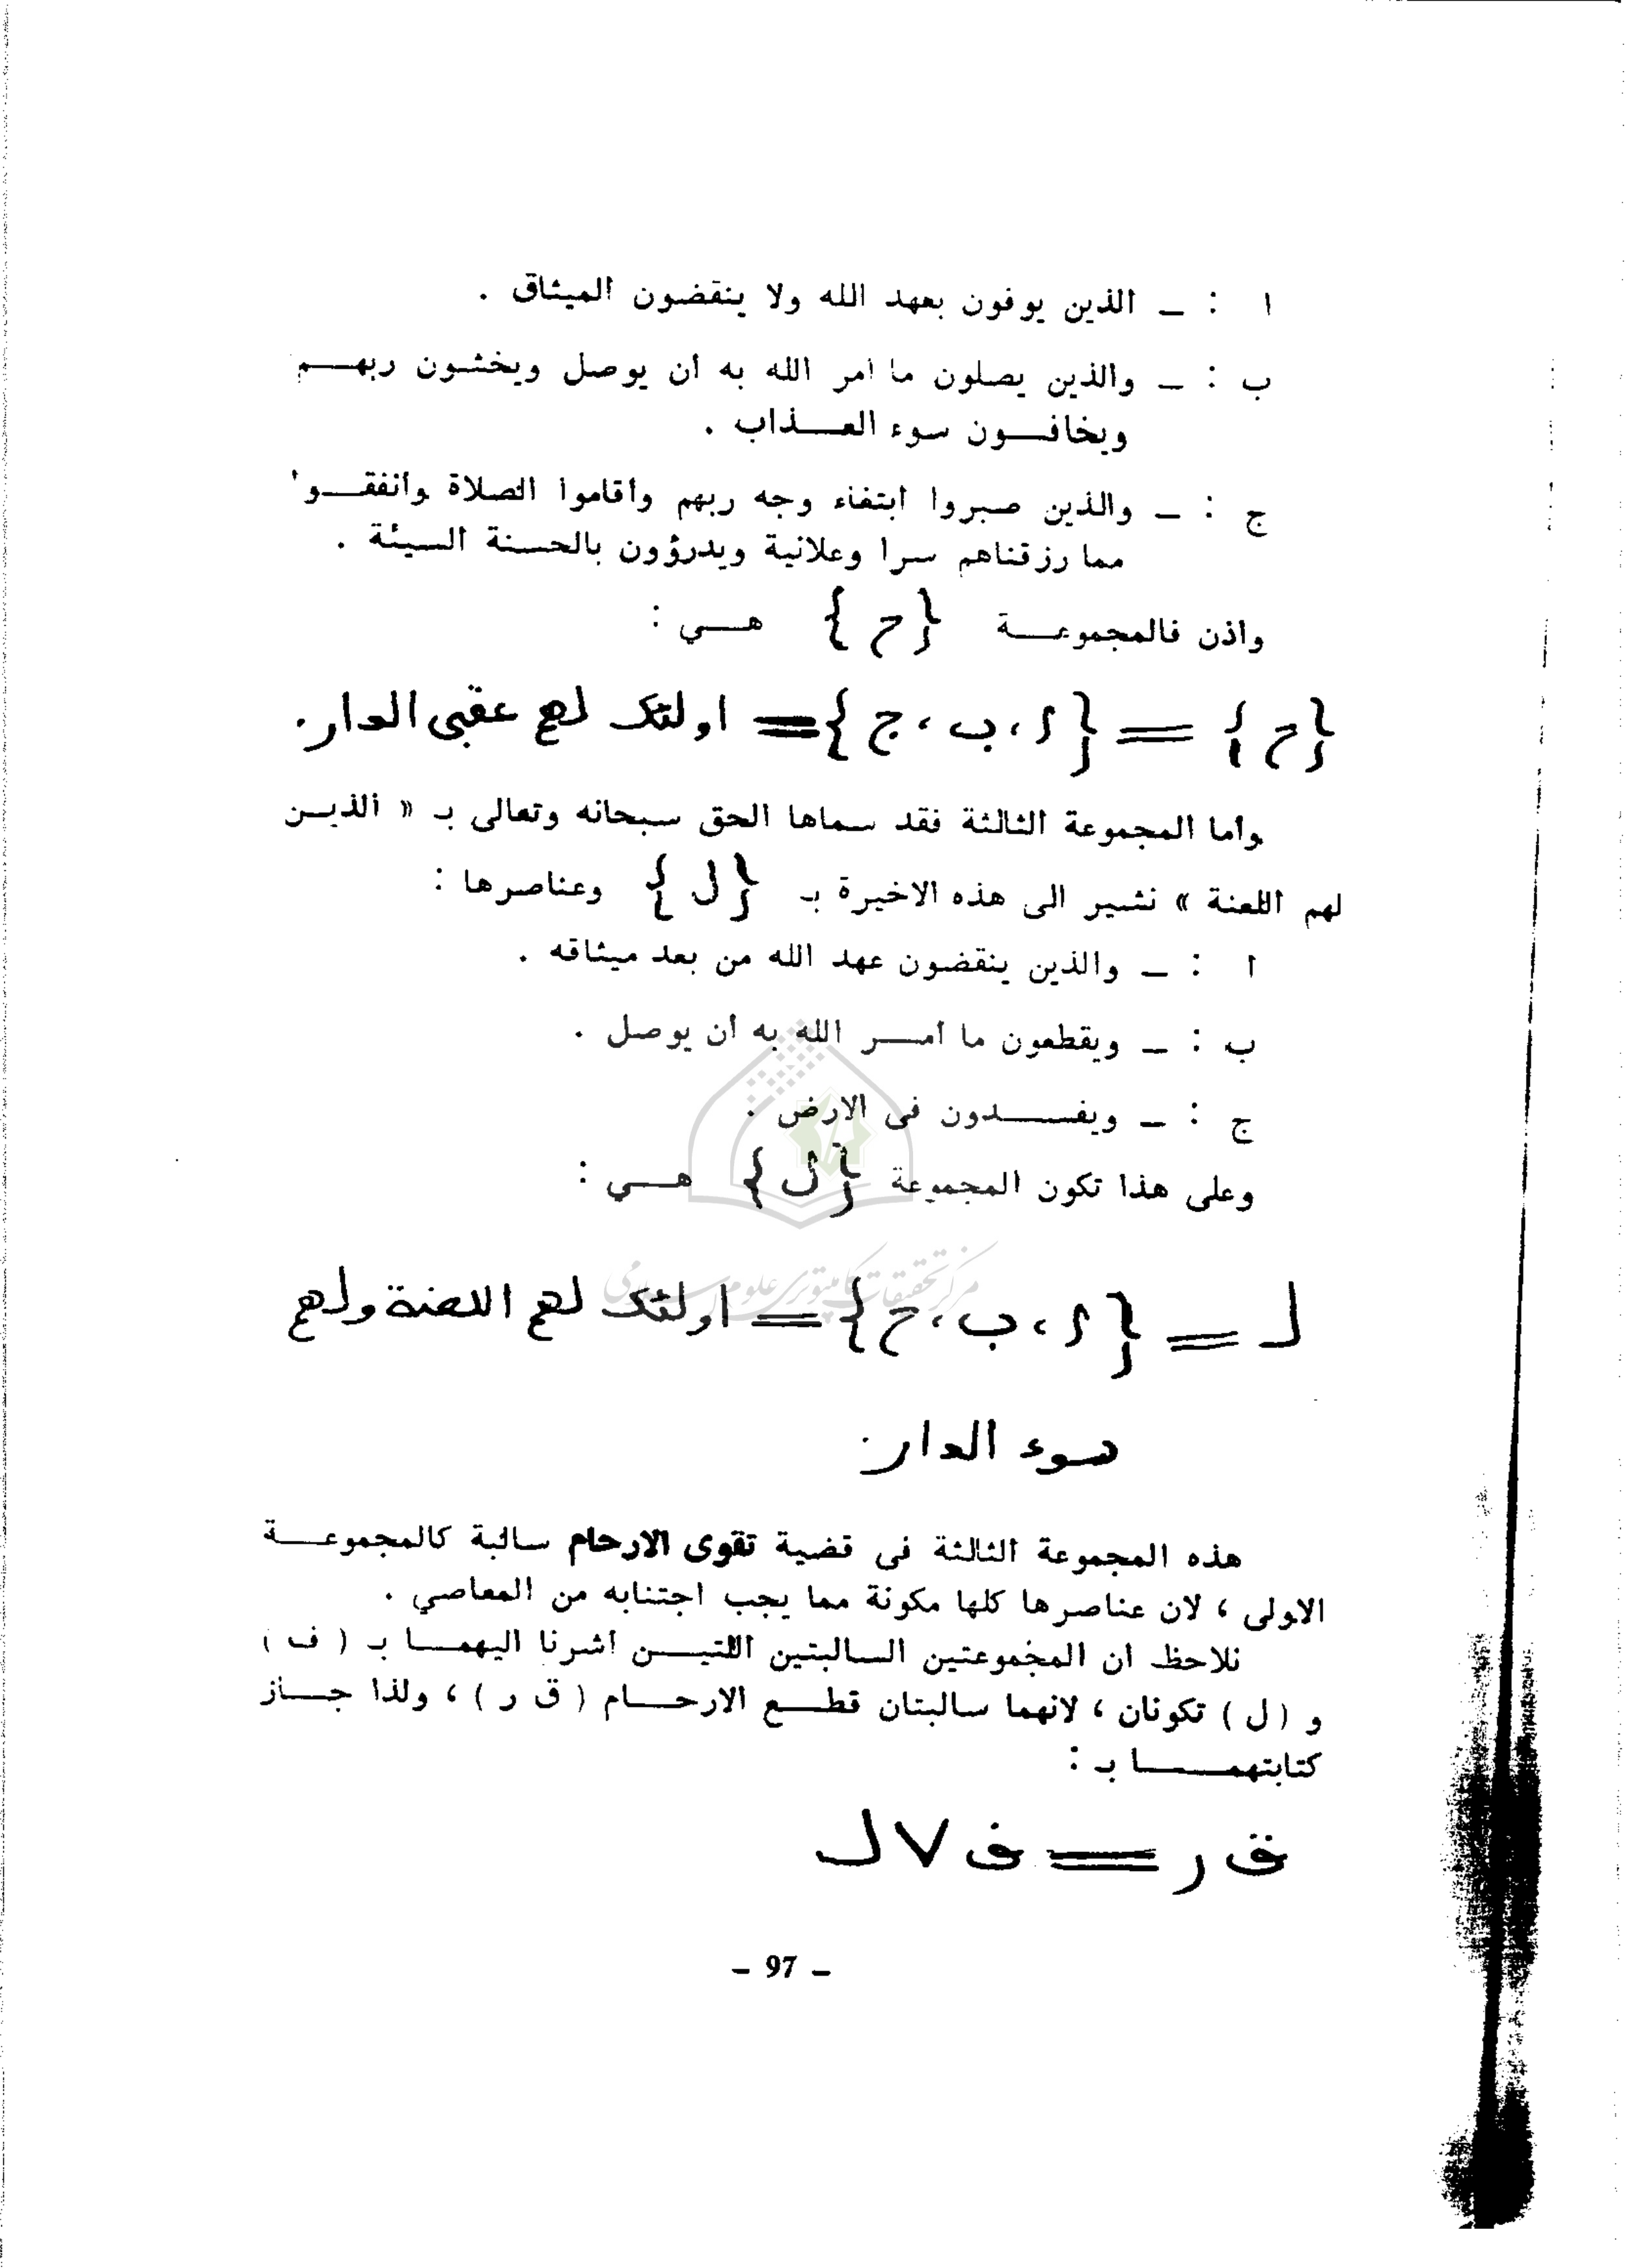 ا : ــ الذين يوفون بعهد الله ولا ينقضون الميثاق .
ب : ــ والذين يصلون ما امر الله به أن يوصل ويخشون ربهـــم
ويخافـــون سوء العـــذاب .
ج : ــ والذين صبروا ابتغاء وجه ربهم وأقاموا الصلاة وأنفقـــوا
مما رزقناهم سرا وعلانية ويدرؤون بالحسنة السيئة .
واذن فالمجموعـــة {ح} هـــي :
{ح} = {أ، ب، ج} = اولئك لهم عقبى الدار.
وأما المجموعة الثالثة فقد سماها الحق سبحانه وتعالى بـ « الذيـن
لهم اللعنة » نشير الى هذه الاخيرة بـ {ل} وعناصرها :
أ : ــ والذين ينقضون عهد الله من بعد ميثاقه .
ب : ــ ويقطعون ما أمـــر الله به أن يوصل .
ج : ــ ويفســـدون فى الارض .
وعلى هذا تكون المجموعة {ل} هـــي :
ل = {أ، ب، ح} = اولئك لهم اللعنة ولهم
سوء الدار.
مركز تحقيقات كامپيوترى علوم اسلامى
هذه المجموعة الثالثة فى قضية تقوى الارحام سالبة كالمجموعـــة
الاولى ، لان عناصرها كلها مكونة مما يجب اجتنابه من المعاصي .
نلاحظ ان المجموعتين السالبتين اللتيـــن أشرنا اليهمـــا بـ ( ف )
و ( ل ) تكونان ، لانهما سالبتان قطـــع الارحـــام ( ق ر ) ، ولذا جـــاز
كتابتهمـــا بـ :
ق ر = ف ٧ ل
– 97 –